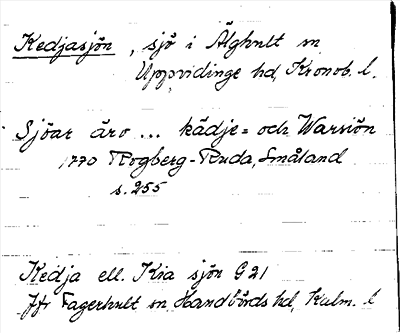 Kedjasjön, sjö i Älghult sn
Uppvidinge hd, Kronob. l.
Sjöar äro ... kädje= och Warsiön
1770 Rogberg-Ruda, Småland
s. 255
Kedja ell. Kia sjön G21
Jfr Fagerhult sn Handbörds hd, Kalm. l